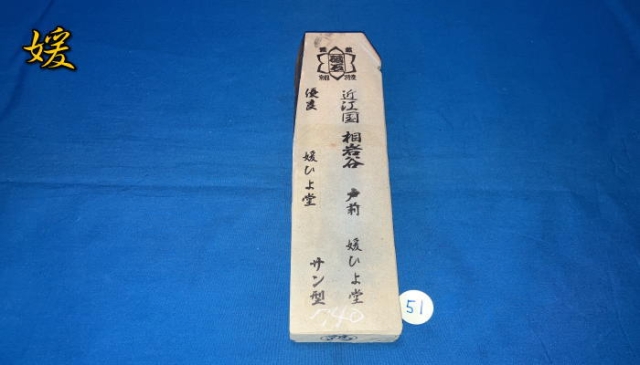 媛
砥石
近江国 相岩谷 戸前 媛ひよ堂
優良 媛ひよ堂 サン型
51